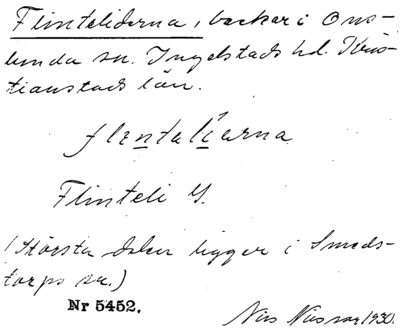 Flinteliderna, backar i Ons-
lunda sn. Ingelstads hd. Kris-
tianstads län.
flentalierna
Flinteli S.
(Största delen ligger i Smeds-
torps sn.)
Nr 5452.
Nils Nilsson 1930.